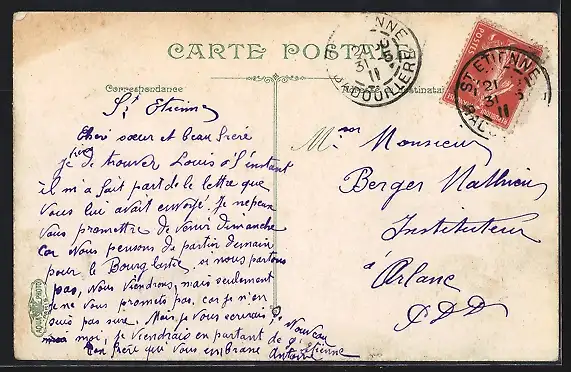 CARTE POSTALE
Correspondance
St Etienne
Chéri sœur et beau frère
je de trouver Louis à l'instant
il m'a fait part de la lettre que
vous lui avait envoyé. Je ne peux
vous promettre de venir dimanche
car nous pensons de partir demain
pour le Bourg si nous partons
pas, nous viendrons, mais seulement
je ne vous promets pas, car je n'en
suis pas sure. Mais je vous écrirais,
moi, je viendrais en partant de
St Etienne
frère qui vous embrasse Antoine
Nouveau
Monsieur
Berger Mathieu
Instituteur
à Arlanc
P.D.D
ST ETIENNE
21
31
5
11
BADOUILLERE
POSTES
ST ETIENNE
21
31
5
11